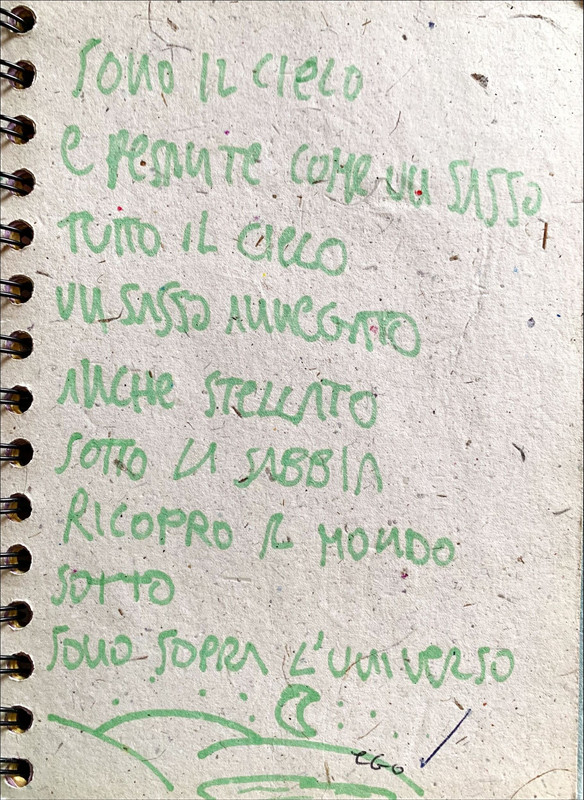 SONO IL CIELO
E PESANTE COME UN SASSO
TUTTO IL CIELO
UN SASSO ANNEGATO
ANCHE STELLATO
SOTTO LA SABBIA
RICOPRO IL MONDO
SOTTO
SONO SOPRA L'UNIVERSO
eGo